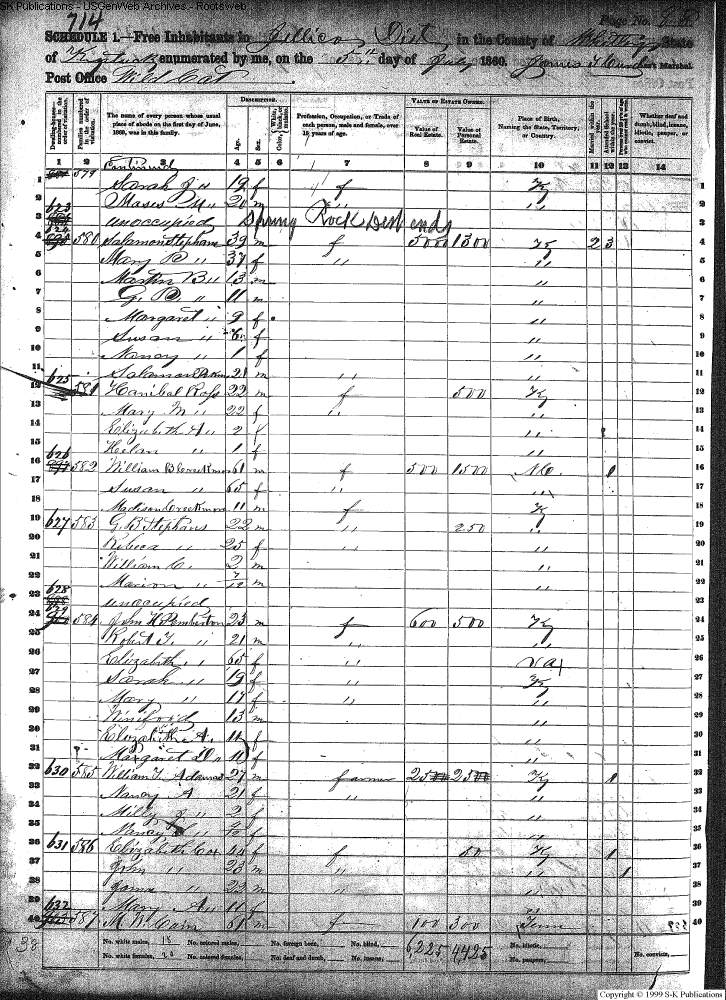 SK Publications - USGenWeb Archives - Rootsweb
714 Page No.
SCHEDULE 1.—Free Inhabitants in Jellico Dist in the County of Whitley State
of Kentuck enumerated by me, on the 5" day of July 1860. Ass't Marshal.
Post Office Wild Cat
Dwelling-houses—numbered in the order of visitation. Families numbered in the order of visitation. The name of every person whose usual place of abode on the first day of June, 1860, was in this family. DESCRIPTION. Age. Sex. Color, White, black, or mulatto. Profession, Occupation, or Trade of each person, male and female, over 15 years of age. VALUE OF ESTATE OWNED. Value of Real Estate. Value of Personal Estate. Place of Birth, Naming the State, Territory, or Country. Married within the year. Attended School within the year. Whether deaf and dumb, blind, insane, idiotic, pauper, or convict.
1 2 3 4 5 6 7 8 9 10 11 12 13 14
579 Continued
1 Sarah J " 19 f f Ky 1
2 Moses M " 20 m " 2
3 623 unoccupied Spring Rock Dist ends 3
4 580 Salamon Stephans 39 m f 5000 1300 Ky 2 3 4
5 Mary B " 37 f " " 5
6 Martin B " 13 m " 6
7 G. B " 11 m " 7
8 Margaret " 9 f " 8
9 Susan " 6 f " 9
10 Nancy " 1 f " 10
11 Salamon 21 m " " 11
12 625 581 Hanibal Ross 22 m f 500 Ky 12
13 Mary M " 22 f " " 13
14 Elizabeth A " 2 f " 14
15 Helan " 1 f " 15
16 626 582 William B Creekmore 61 m f 500 1500 N.C. 1 16
17 Susan " 65 f " " 17
18 Madison Creekmore 11 m f Ky 18
19 627 583 G. B Stephans 22 m " 250 " 19
20 Rebeca " 25 f " 20
21 William C. 2 m " 21
22 Marion " 7/12 m " 22
23 628 unoccupied 23
24 29 584 John H Pemberton 23 m f 600 500 Ky 24
25 Robert T. " 21 m " " 25
26 Elizabeth " 65 f " Va 26
27 Sarah " 19 f " Ky 27
28 Mary " 17 f " " 28
29 Winifroid 13 m " 29
30 Elizabeth A. 11 f " 30
31 Margaret D " 11 f " 31
32 630 585 William T. Adams 27 m farmer 2500 2500 Ky 1 32
33 Nancy A 21 f " " 33
34 Milly J " 2 f " 34
35 Nancy " f " 35
36 631 586 Elizabeth Cox 44 f f 50 Ky 1 36
37 John " 23 m " " 1 37
38 " 22 m " " 38
39 Mary A " 11 f " 39
40 632 587 M W Cain 61 m f 100 300 Tenn 40
38 No. white males, 18 No. colored males, No. foreign born, No. blind, 6,225 4425 No. idiotic,
No. white females, 20 No. colored females, No. deaf and dumb, No. insane, No. paupers, No. convicts,
Copyright © 1999 S-K Publications